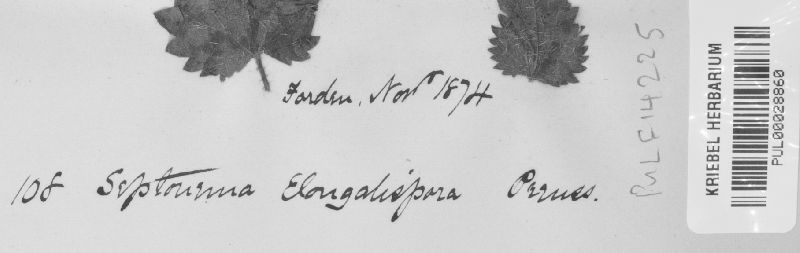 Forden, Novr 1874
108 Septonema Elongatispora Preuss.
PULF14225
KRIEBEL HERBARIUM
PUL00028860